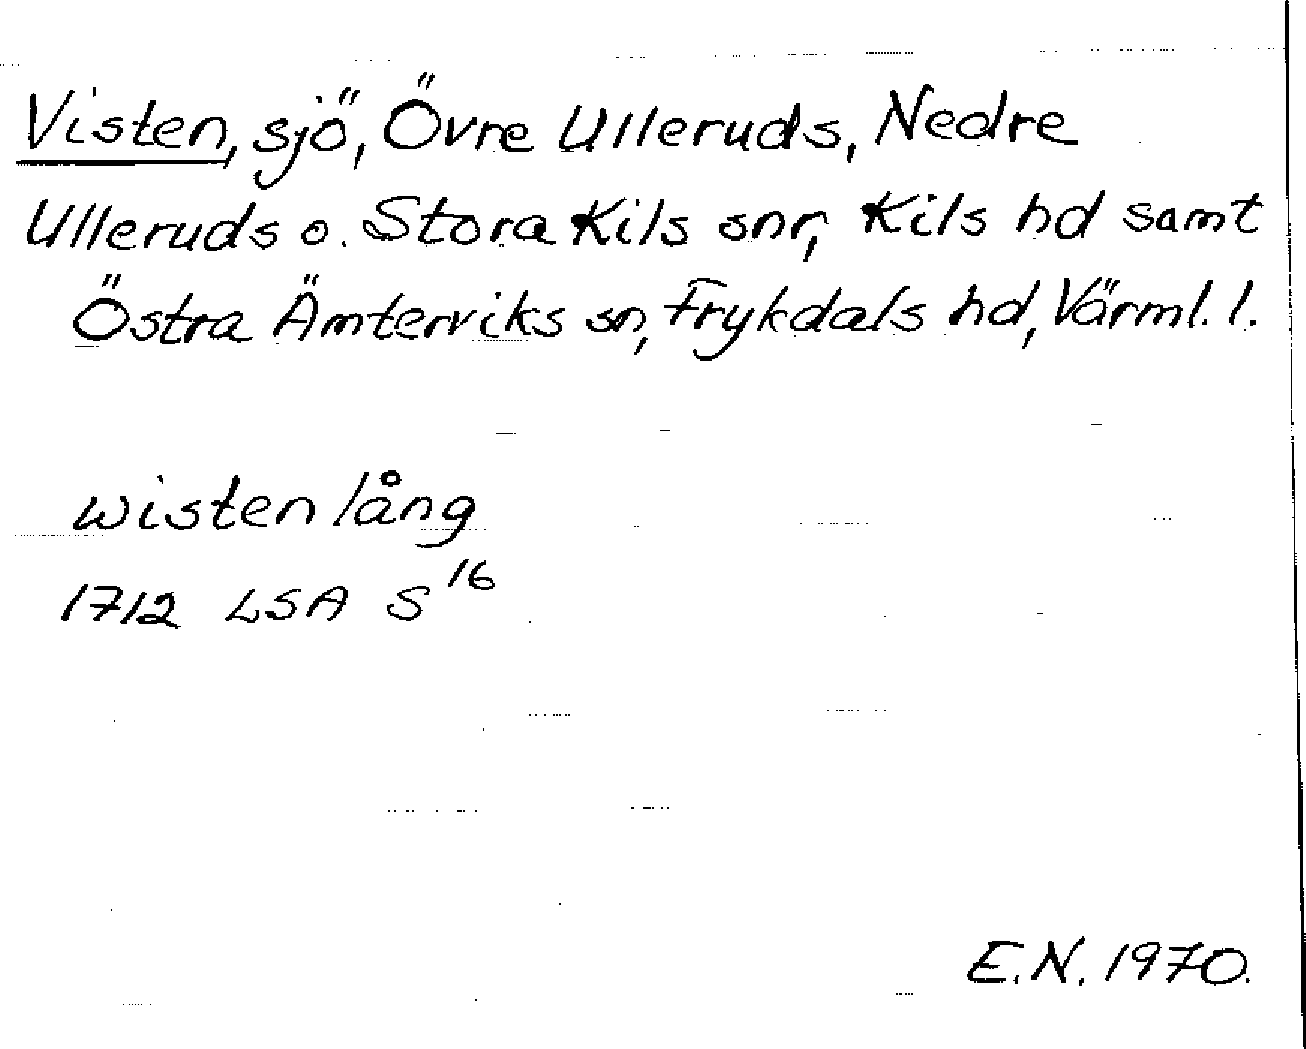 Visten, sjö, Övre Ulleruds, Nedre
Ulleruds o. Stora Kils snr, Kils hd samt
Östra Ämterviks sn, Frykdals hd, Värml. l.
wisten lång
1712 LSA S 16
E.N. 1970.